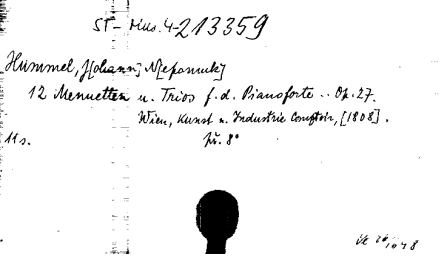 ST- Mus. 4-213359
Hummel, J[ohann] N[epomuk]
12 Menuetten u. Trios f. d. Pianoforte .. Op. 27.
Wien, Kunst u. Industrie Comptoir, [1808].
11 s. 8°